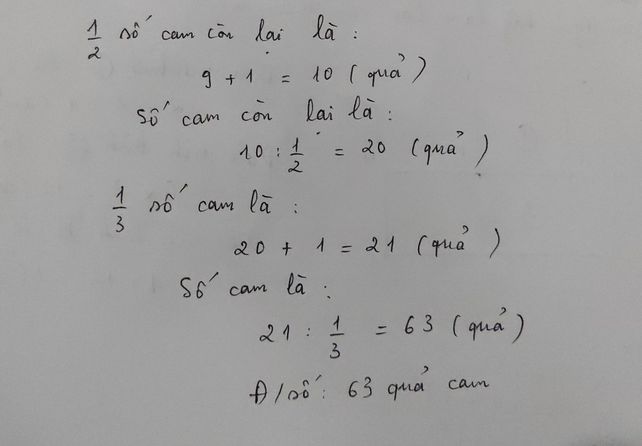 1/2 số cam còn lại là :
9 + 1 = 10 ( quả )
Số cam còn lại là :
10 : 1/2 = 20 ( quả )
1/3 số cam là :
20 + 1 = 21 ( quả )
Số cam là :
21 : 1/3 = 63 ( quả )
Đ/số : 63 quả cam